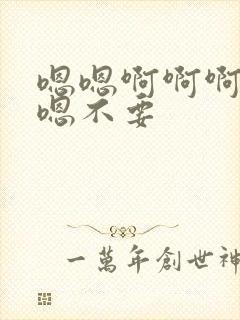 嗯嗯啊啊啊
嗯不要
一萬年創世神